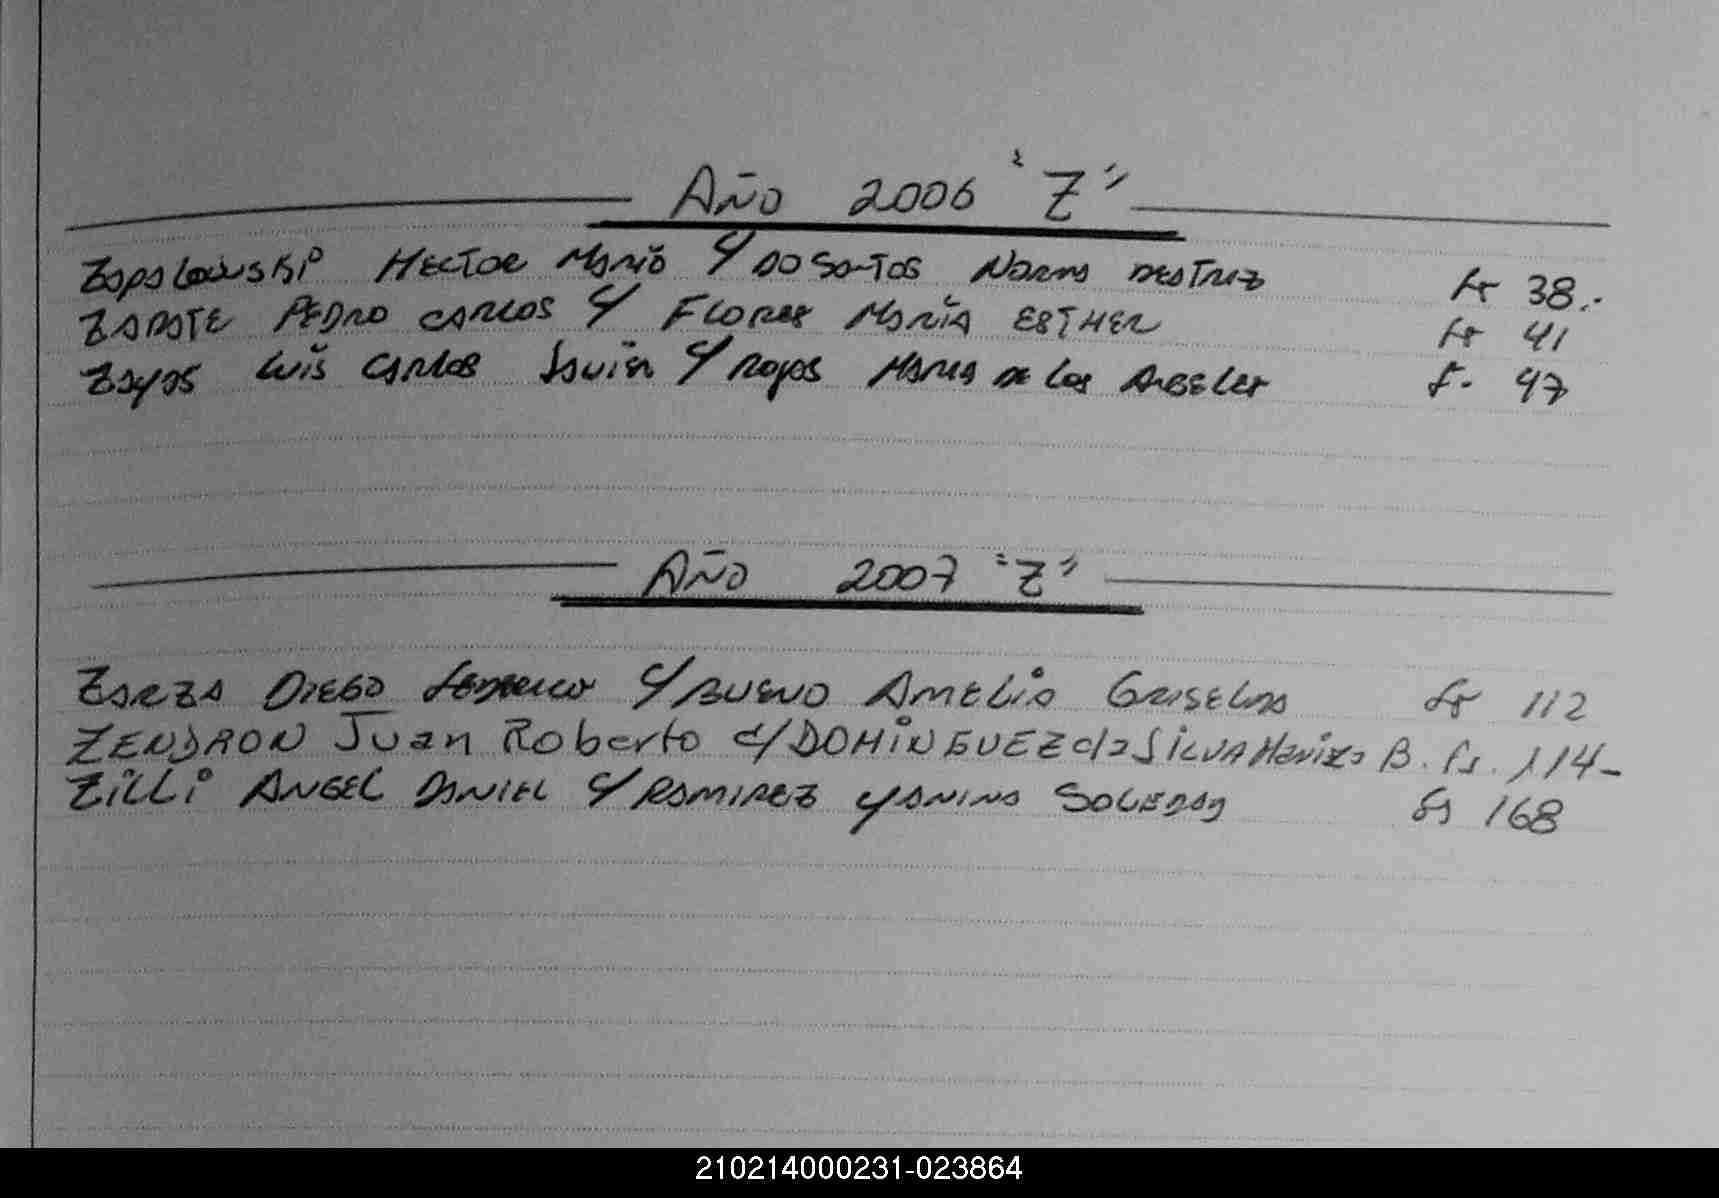 Año 2006 "Z"
Zapalowski Hector Mario C/ Do Santos Norma Beatriz Fs 38.-
Zarate Pedro Carlos C/ Flores Maria Esther Fs 41
Zayas Luis Carlos Javier C/ Rojas Maria de los Angeles F. 47
Año 2007 "Z"
Zarza Diego C/ Bueno Amelia Griselda Fs 112
ZENDRON Juan Roberto C/ DOMINGUEZ da SILVA Mariza B. fs. 114-
Zilli Angel Daniel C/ Ramirez Yanina Soledad Fs 168
210214000231-023864